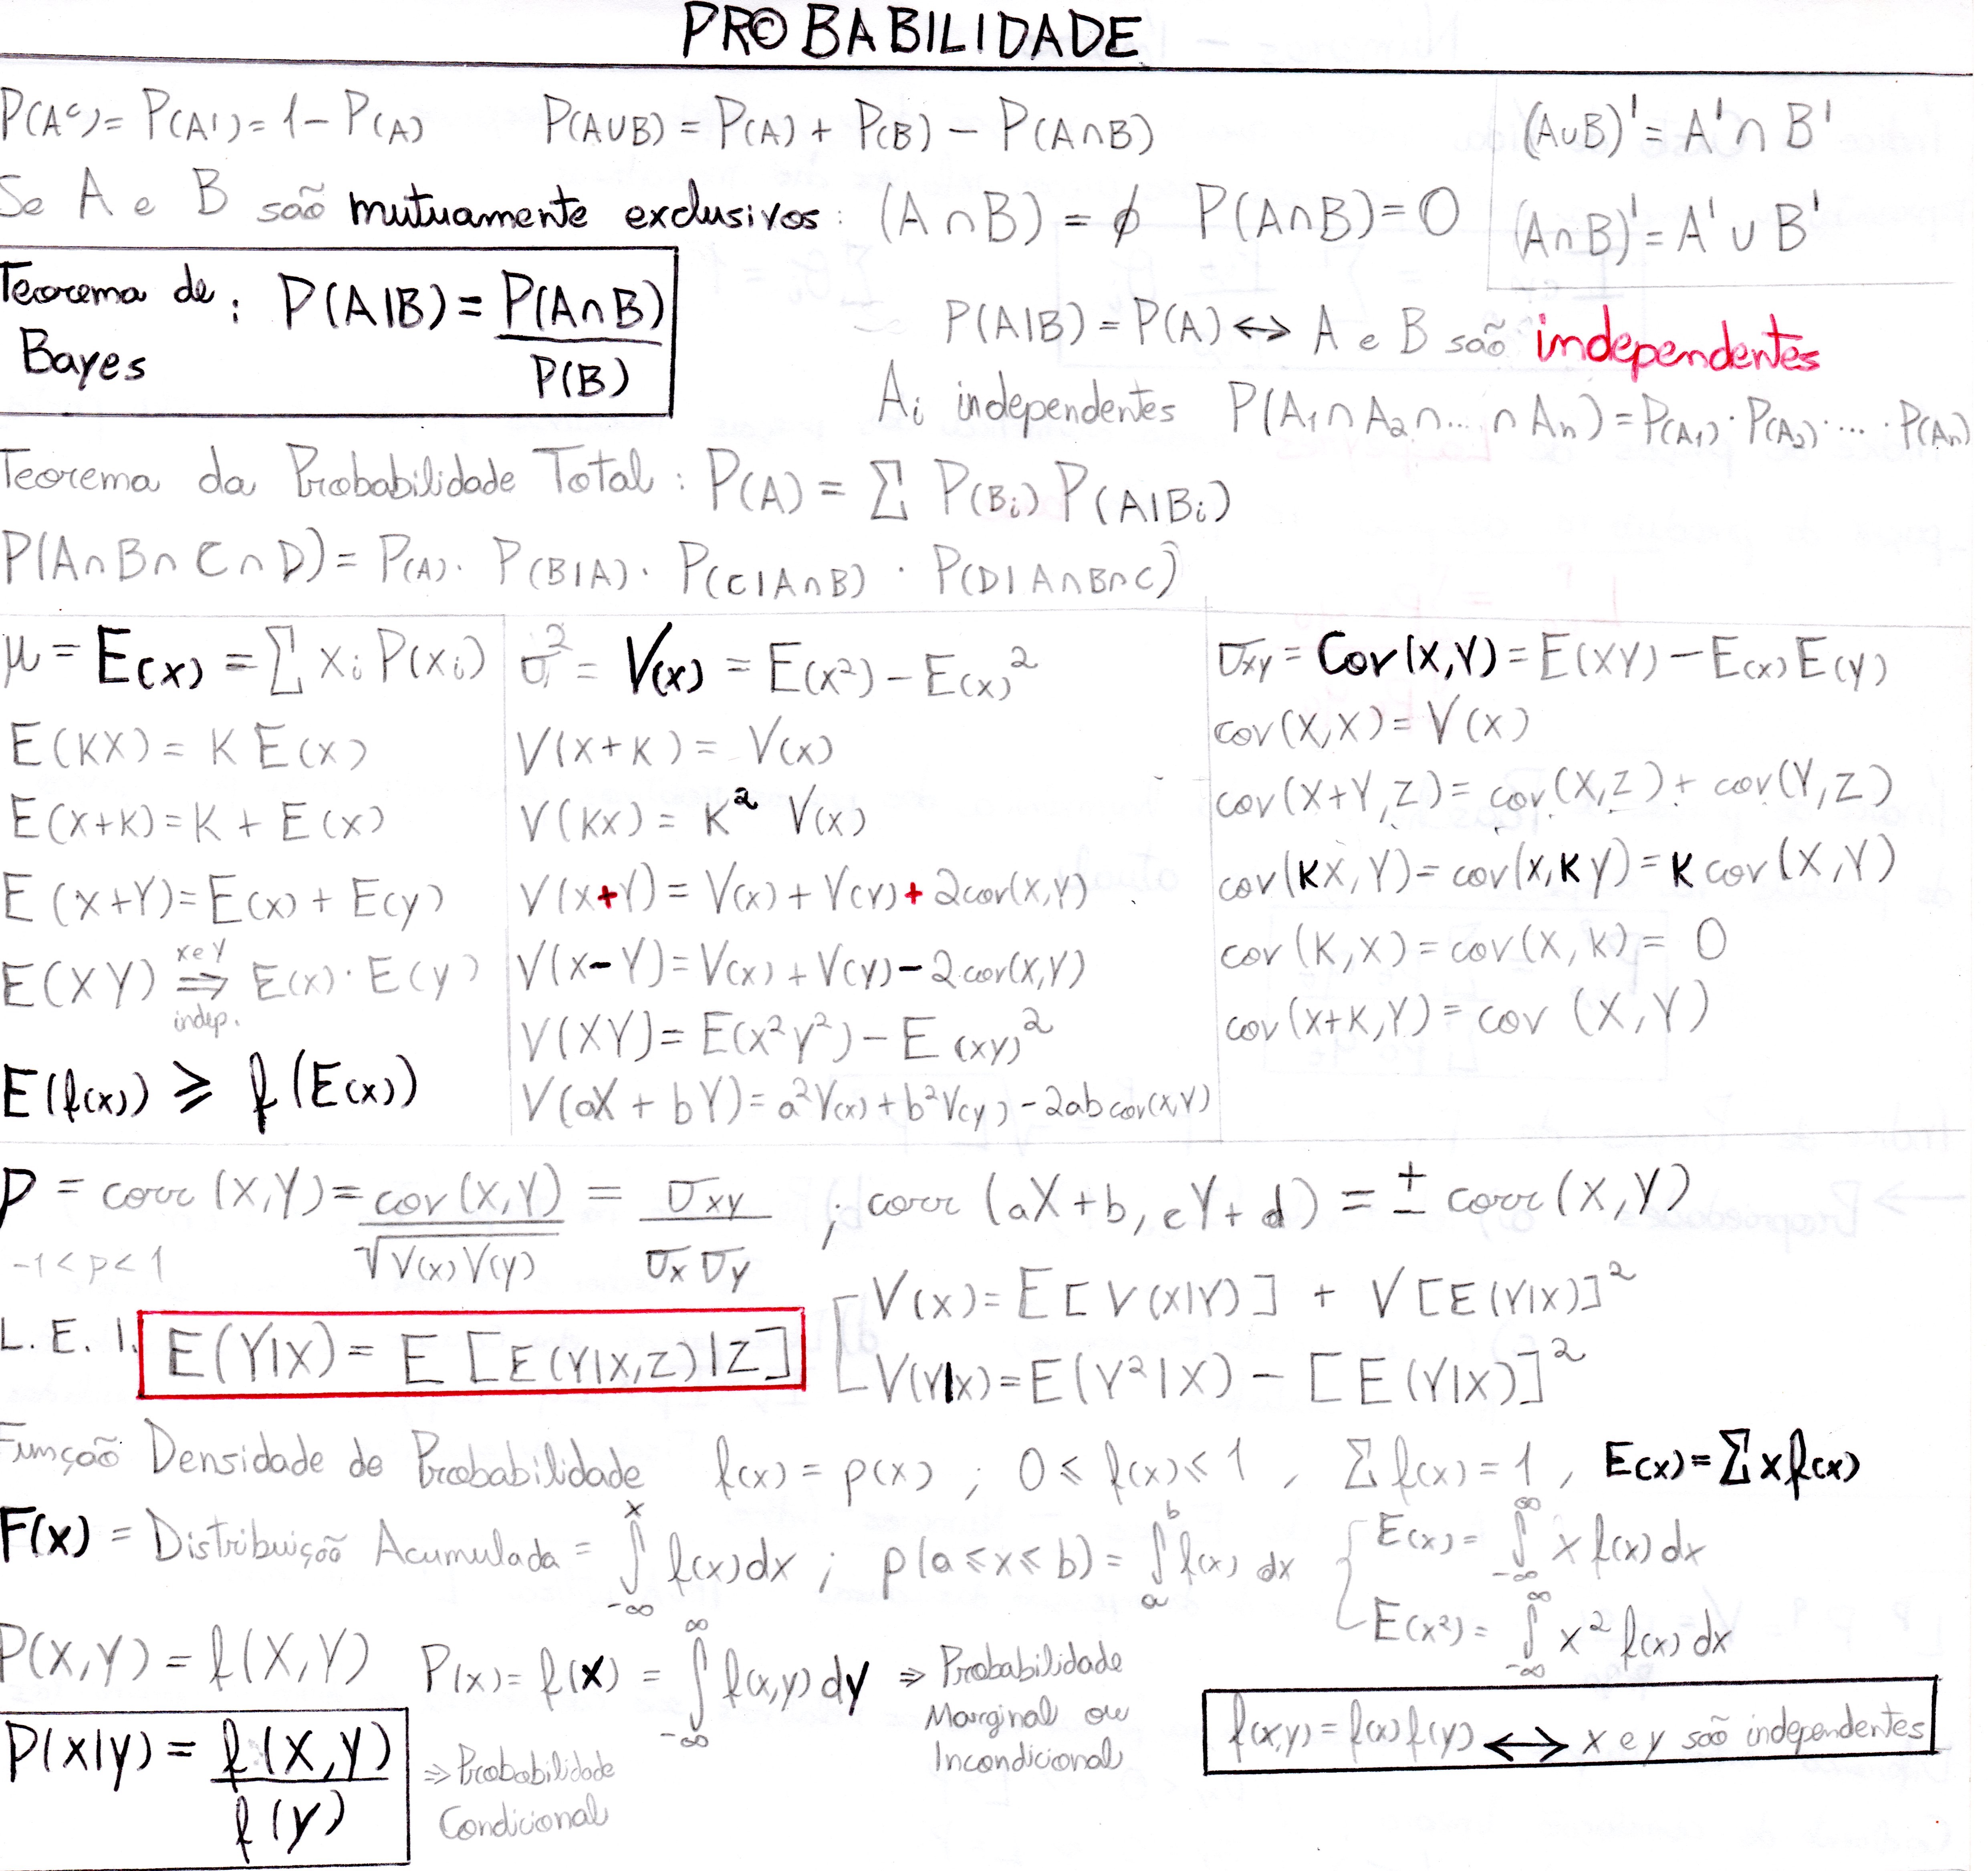 PROBABILIDADE
P(Aᶜ) = P(A') = 1 - P(A) P(A∪B) = P(A) + P(B) - P(A∩B)
(A∪B)' = A' ∩ B'
Se A e B são mutuamente exclusivos: (A∩B) = ϕ P(A∩B) = 0
(A∩B)' = A' ∪ B'
Teorema de Bayes: P(A|B) = P(A∩B) / P(B)
P(A|B) = P(A) ↔ A e B são independentes
Ai independentes P(A₁∩A₂∩...∩An) = P(A₁)·P(A₂)·...·P(An)
Teorema da Probabilidade Total: P(A) = ∑ P(Bi) P(A|Bi)
P(A∩B∩C∩D) = P(A)· P(B|A)· P(C|A∩B) · P(D|A∩B∩C)
μ = E(x) = ∑ xi P(xi)
E(KX) = K E(x)
E(x+k) = K + E(x)
E(X+Y) = E(x) + E(y)
E(XY) ⇒ E(x)·E(y)
x e Y
indep.
E(f(x)) ⩾ f(E(x))
σ² = V(x) = E(x²) - E(x)²
V(x+k) = V(x)
V(kx) = K² V(x)
V(x+Y) = V(x) + V(Y) + 2cov(x,Y)
V(x-Y) = V(x) + V(y) - 2cov(x,Y)
V(XY) = E(x²Y²) - E(xy)²
V(aX + bY) = a²V(x) + b²V(y) - 2ab cov(x,Y)
σxy = Cov(X,Y) = E(XY) - E(x)E(y)
cov(X,X) = V(x)
cov(X+Y,Z) = cov(X,Z) + cov(Y,Z)
cov(KX,Y) = cov(x,Ky) = K cov(X,Y)
cov(K,X) = cov(X,k) = 0
cov(x+K,Y) = cov (X,Y)
ρ = corr (X,Y) = cov(X,Y) / √V(x)V(y) = σxy / σx σy ; corr (aX+b, cY+d) = ± corr(X,Y)
-1 < p < 1
V(x) = E[V(X|Y)] + V[E(Y|X)]²
L.E.I. E(Y|X) = E [E(Y|X,Z)|Z]
V(Y|x) = E(Y²|X) - [E(Y|X)]²
Função Densidade de Probabilidade f(x) = p(x) ; 0 ⩽ f(x) ⩽ 1 , ∑ f(x) = 1 , E(x) = ∑ x f(x)
F(x) = Distribuição Acumulada = ∫₋∞ˣ f(x)dx ; p(a ⩽ x ⩽ b) = ∫ₐᵇ f(x) dx
E(x) = ∫₋∞^∞ x f(x) dx
E(x²) = ∫₋∞^∞ x² f(x) dx
P(X,Y) = f(X,Y) P(x) = f(x) = ∫₋∞^∞ f(x,y) dy ⇒ Probabilidade
Marginal ou
Incondicional
f(x,y) = f(x) f(y) ↔ x e y são independentes
P(x|y) = f(X,Y) / f(y) ⇒ Probabilidade
Condicional